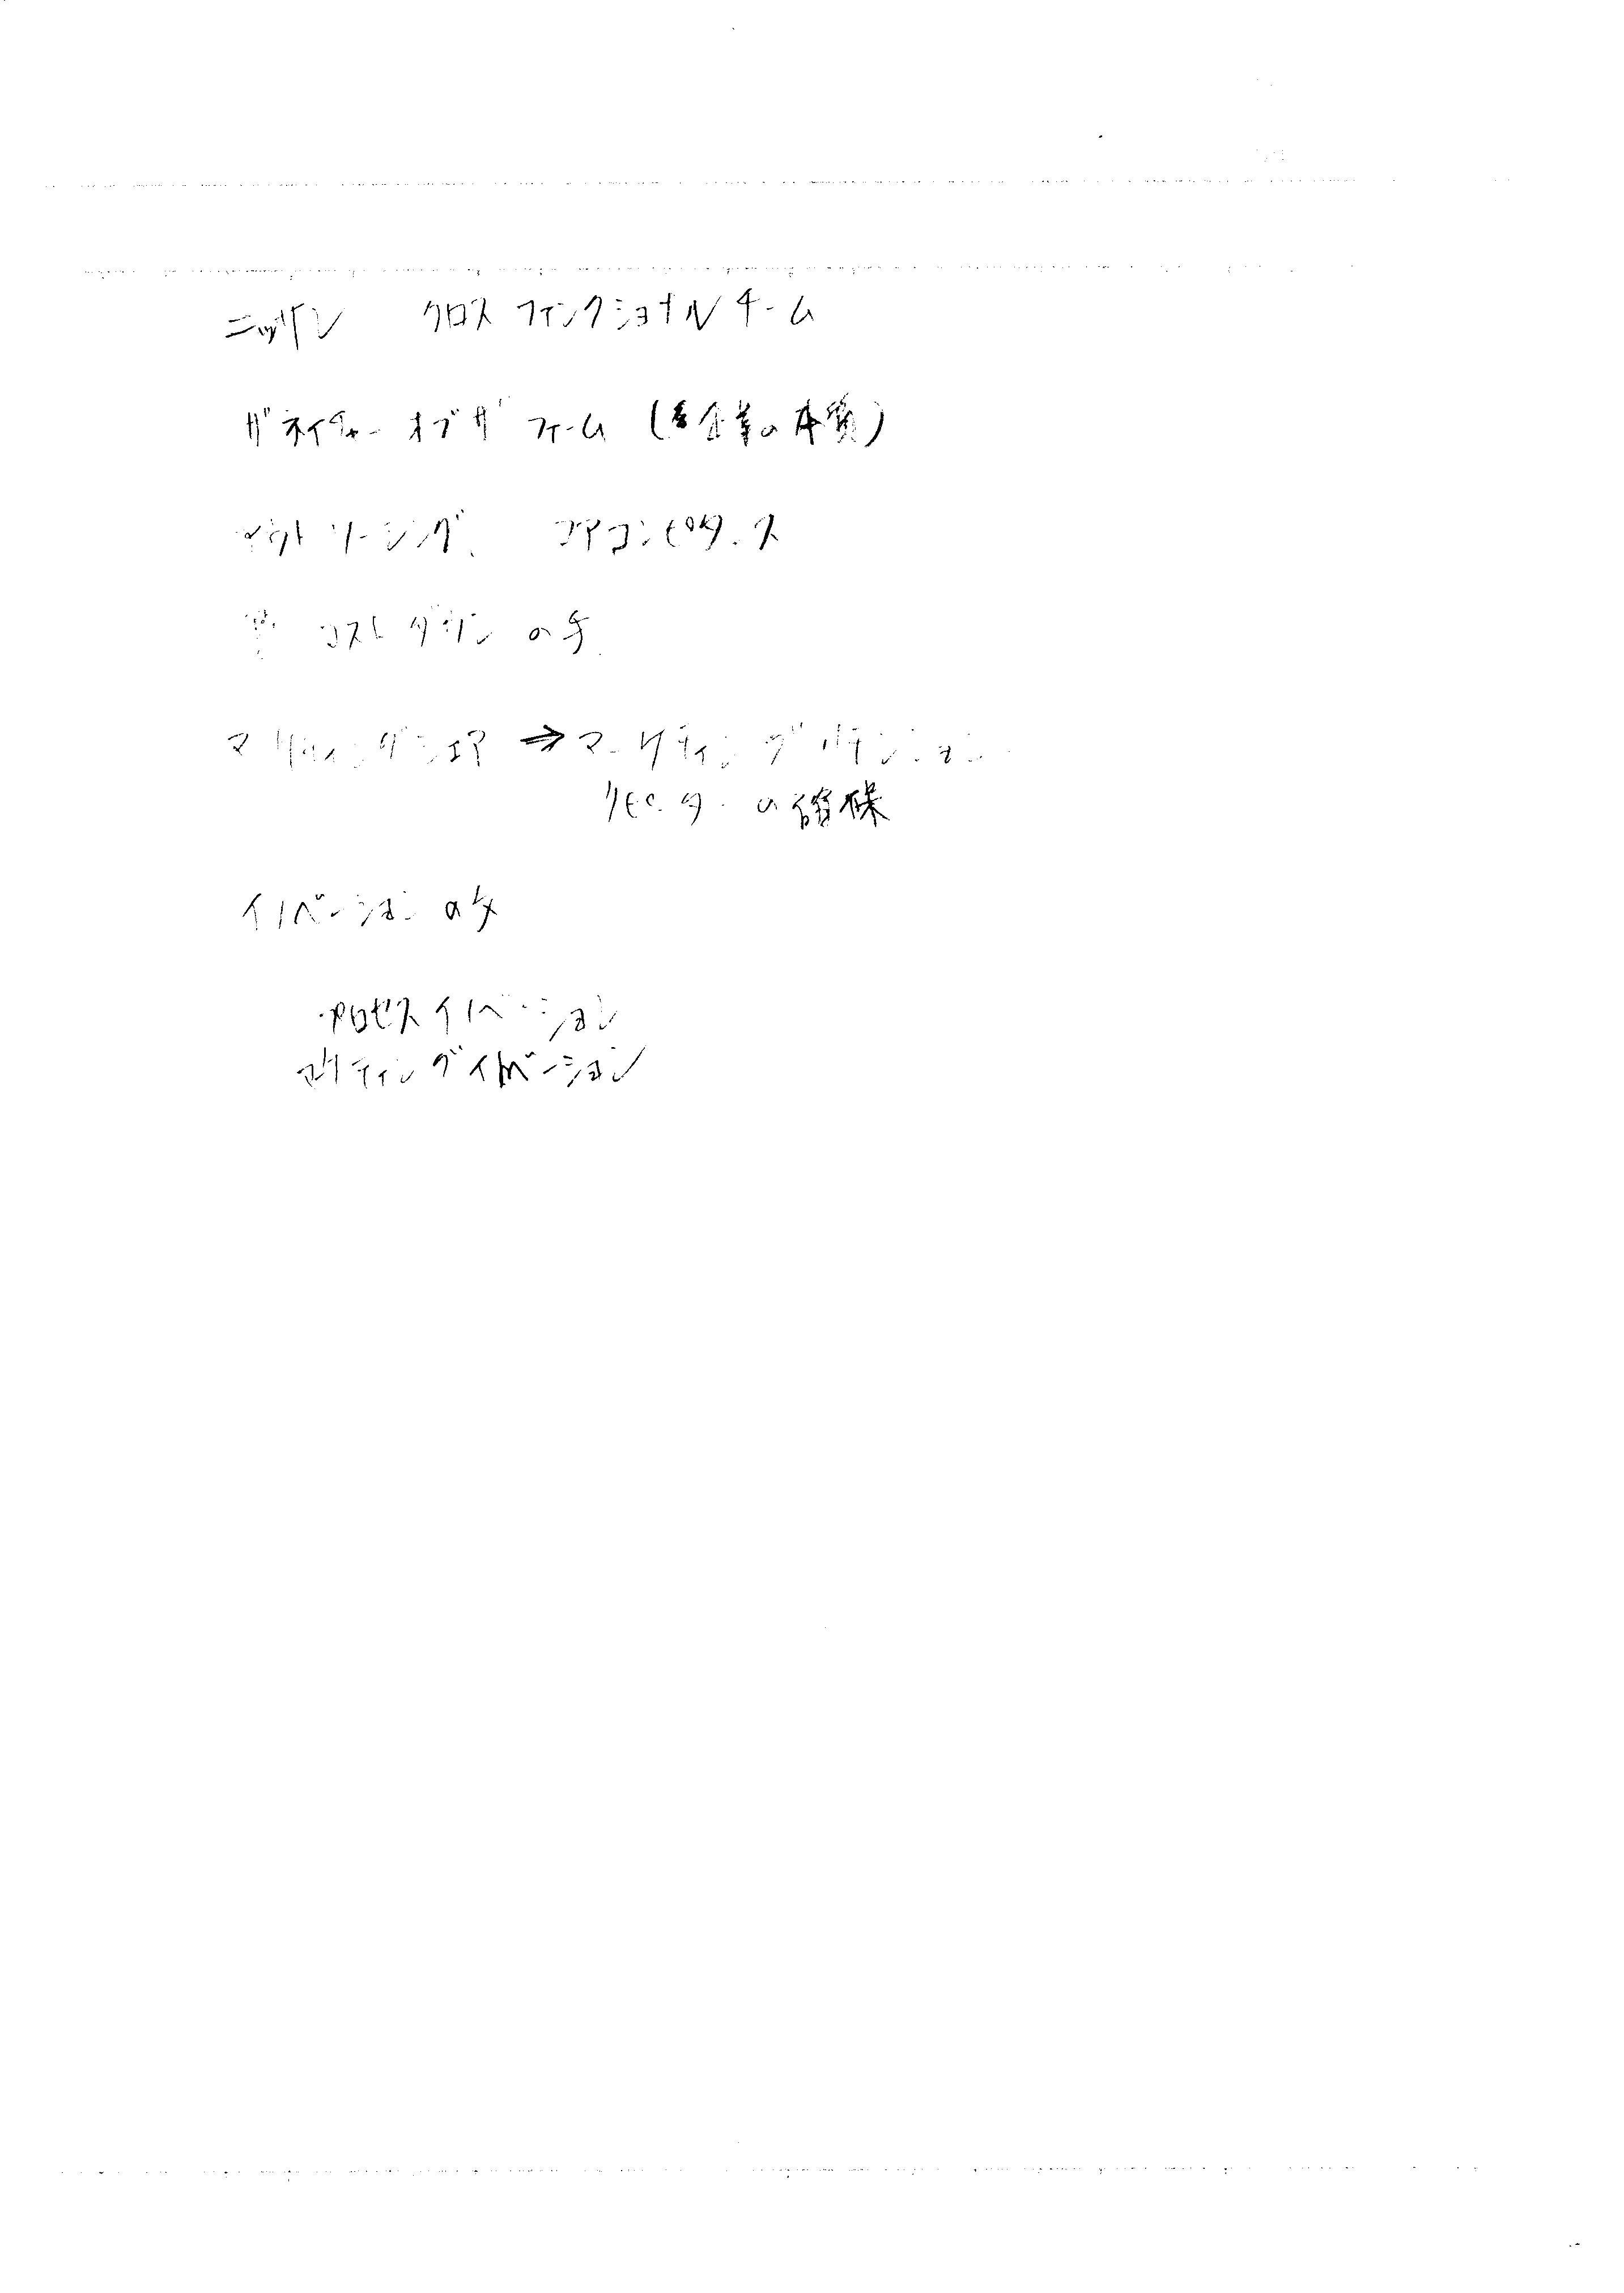 ニッサン クロスファンクショナルチーム
ザネイチャーオブザファーム（企業の本質）
アウトソーシング コアコンピタンス
コストダウンのみ
マーケティングシェア ⇒ マーケティングリテンション
リピーターの確保
イノベーションのタ
プロセスイノベーション
マーケティングイノベーション